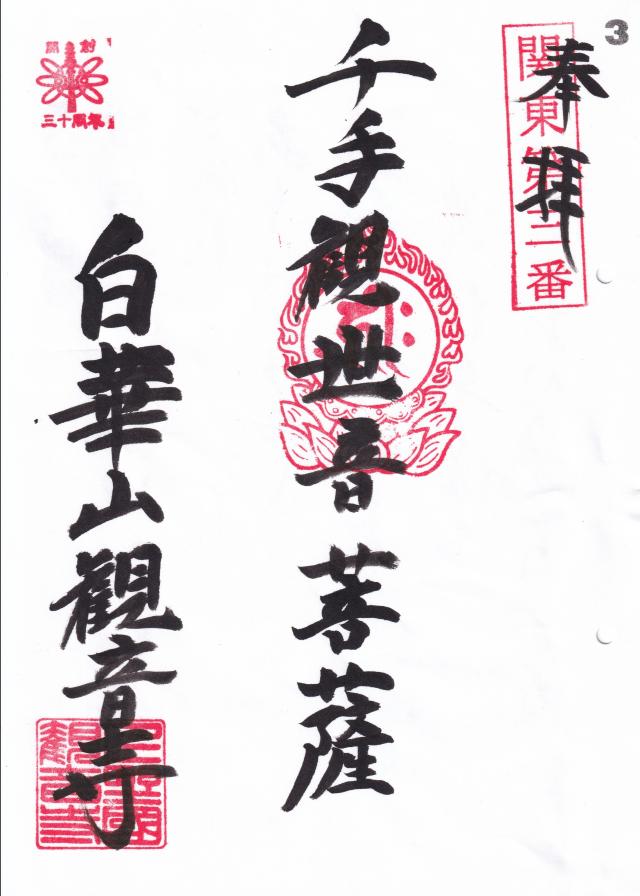 3
奉拝
関東第三番
千手觀世音菩薩
白華山観音寺
開創
三十周年